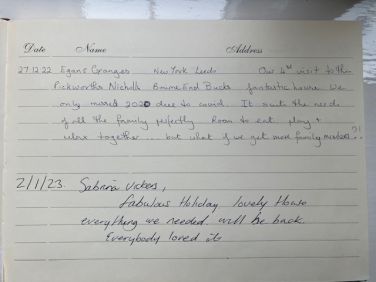 Date Name Address
27.12.22 Egans Granges New York Leeds Our 4th visit to this
Pickworths Nicholls Bourne End Bucks fantastic house. We
only missed 2020 due to covid. It suits the needs
of all the family perfectly. Room to eat, play +
relax together... but what if we get more family members..?!
2/1/23. Sabrina Vickers,
fabulous Holiday lovely House
everything we needed. will be back.
Everybody loved it